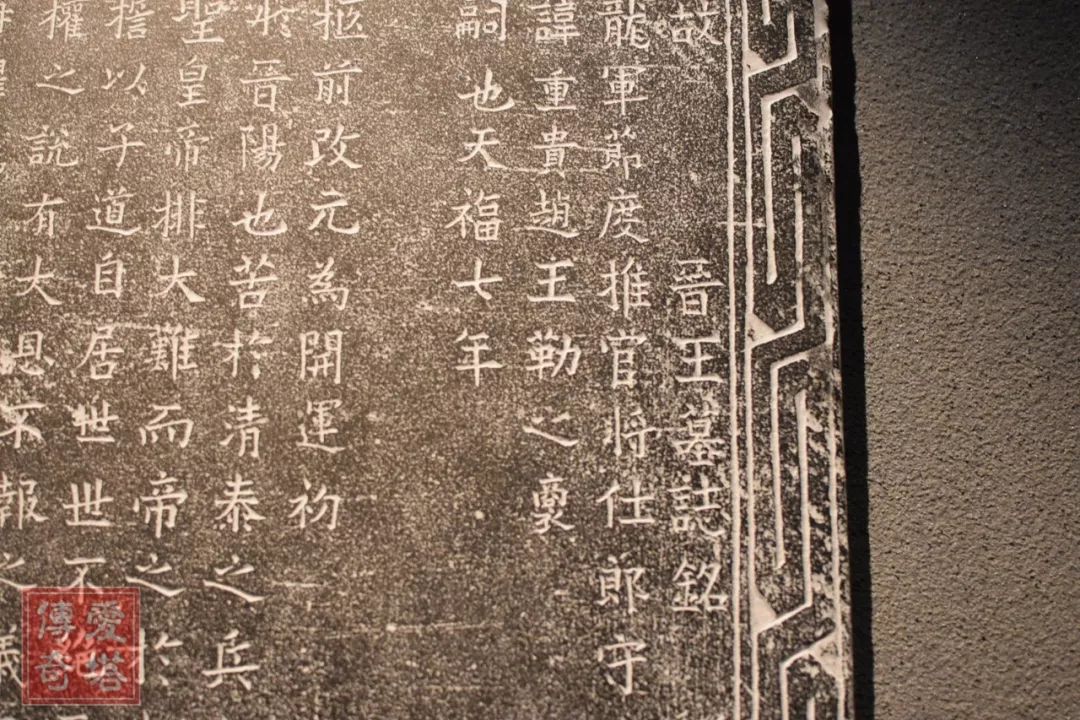 故 晉王墓誌銘
龍軍節度推官將仕郎守
諱重貴趙王勒之裔
嗣也天福七年
柩前改元為開運初
於晉陽也苦於清泰之兵
聖皇帝排大難而帝之於
以子道自居世世不
權之說有大恩不報之義
愛塔傳奇